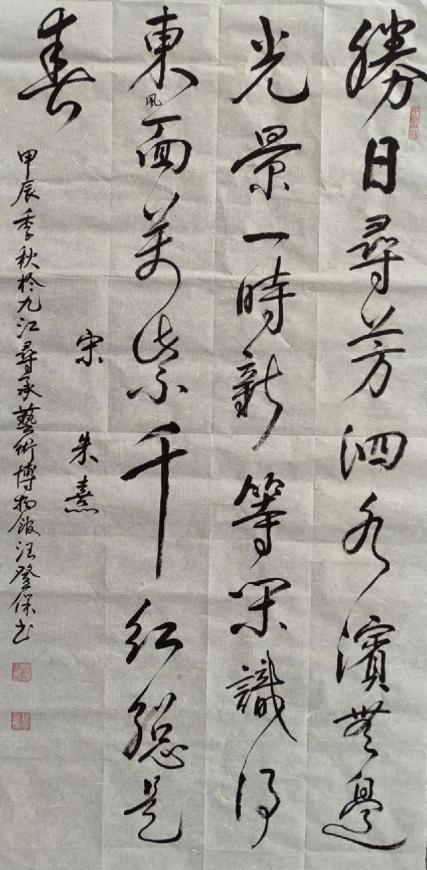 勝日尋芳泗水濱無邊
光景一時新等閑識得
東風面萬紫千紅總是
春
宋 朱熹
甲辰季秋於九江尋承藝術博物館汪登保书